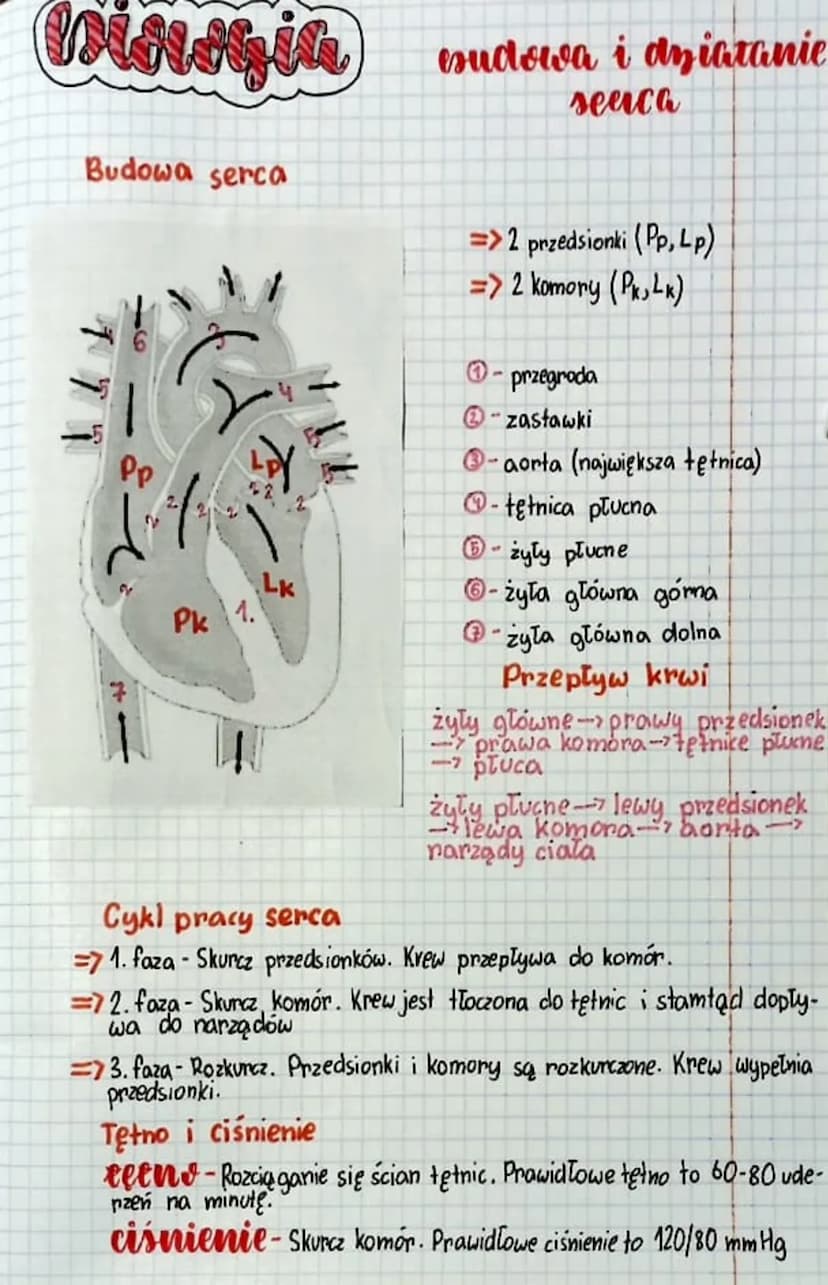 Biologia
Budowa i działanie
serca
Budowa serca
=> 2 przedsionki (Pp, Lp)
=> 2 komory (Pk, Lk)
6
3
4
5
5
5
5
Pp
Lp
2
2
2
2
2
2
2
2
Lk
Pk
1.
7
① - przegroda
② - zastawki
③ - aorta (największa tętnica)
④ - tętnica płucna
⑤ - żyły płucne
⑥ - żyła główna górna
⑦ - żyła główna dolna
Przepływ krwi
żyły główne → prawy przedsionek
→ prawa komora → tętnice płucne
→ płuca
żyły płucne → lewy przedsionek
→ lewa komora → aorta →
narządy ciała
Cykl pracy serca
=> 1. faza - Skurcz przedsionków. Krew przepływa do komór.
=> 2. faza - Skurcz komór. Krew jest tłoczona do tętnic i stamtąd dopły-
wa do narządów
=> 3. faza - Rozkurcz. Przedsionki i komory są rozkurczone. Krew wypełnia
przedsionki.
Tętno i ciśnienie
tętno - Rozciąganie się ścian tętnic. Prawidłowe tętno to 60-80 ude-
rzeń na minutę.
ciśnienie - Skurcz komór. Prawidłowe ciśnienie to 120/80 mmHg